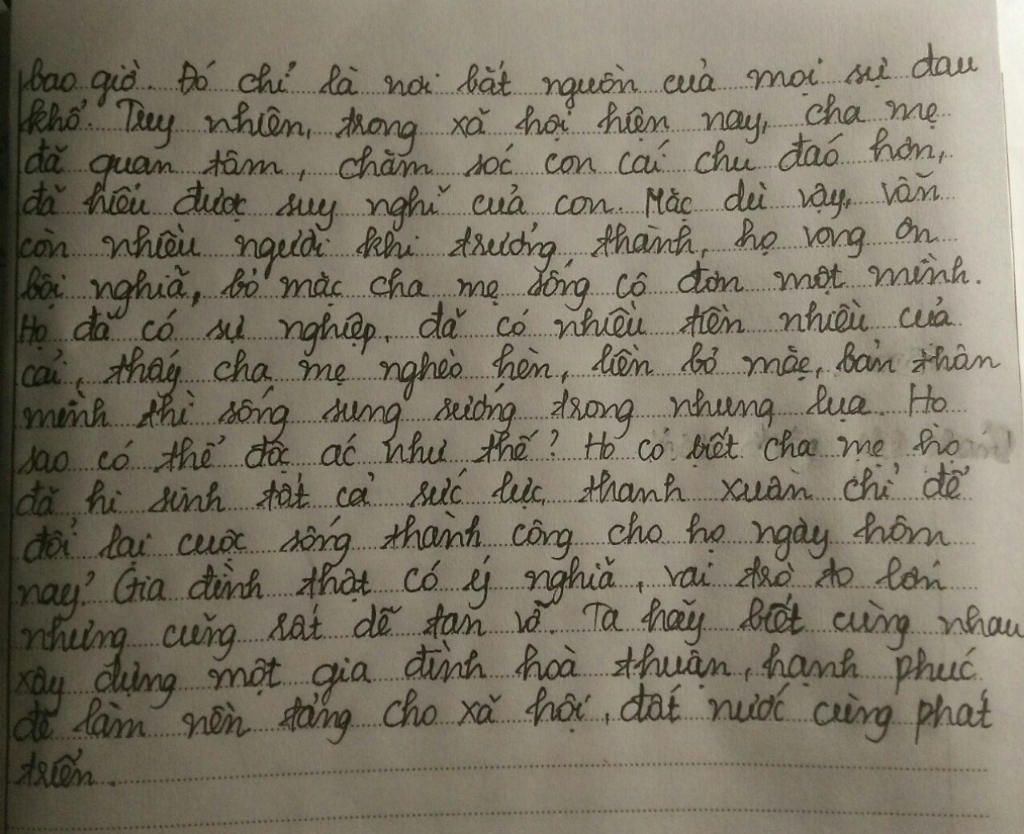 bao giờ. Đó chỉ là nơi bắt nguồn của mọi sự đau
khổ. Tuy nhiên, trong xã hội hiện nay, cha mẹ
đã quan tâm, chăm sóc con cái chu đáo hơn,
đã hiểu được suy nghĩ của con. Mặc dù vậy, vẫn
còn nhiều người khi trưởng thành, họ vong ơn
bội nghĩa, bỏ mặc cha mẹ sống cô đơn một mình.
Họ đã có sự nghiệp, đã có nhiều tiền nhiều của
cải, thấy cha mẹ nghèo hèn, liền bỏ mặc, bản thân
mình thì sống sung sướng trong nhung lụa. Họ
sao có thể độc ác như thế? Họ có biết cha mẹ họ
đã hi sinh tất cả sức lực, thanh xuân chỉ để
đổi lại cuộc sống thành công cho họ ngày hôm
nay? Gia đình thật có ý nghĩa, vai trò to lớn
nhưng cũng rất dễ tan vỡ. Ta hãy biết cùng nhau
xây dựng một gia đình hoà thuận, hạnh phúc
để làm nền tảng cho xã hội, đất nước cùng phát
triển.